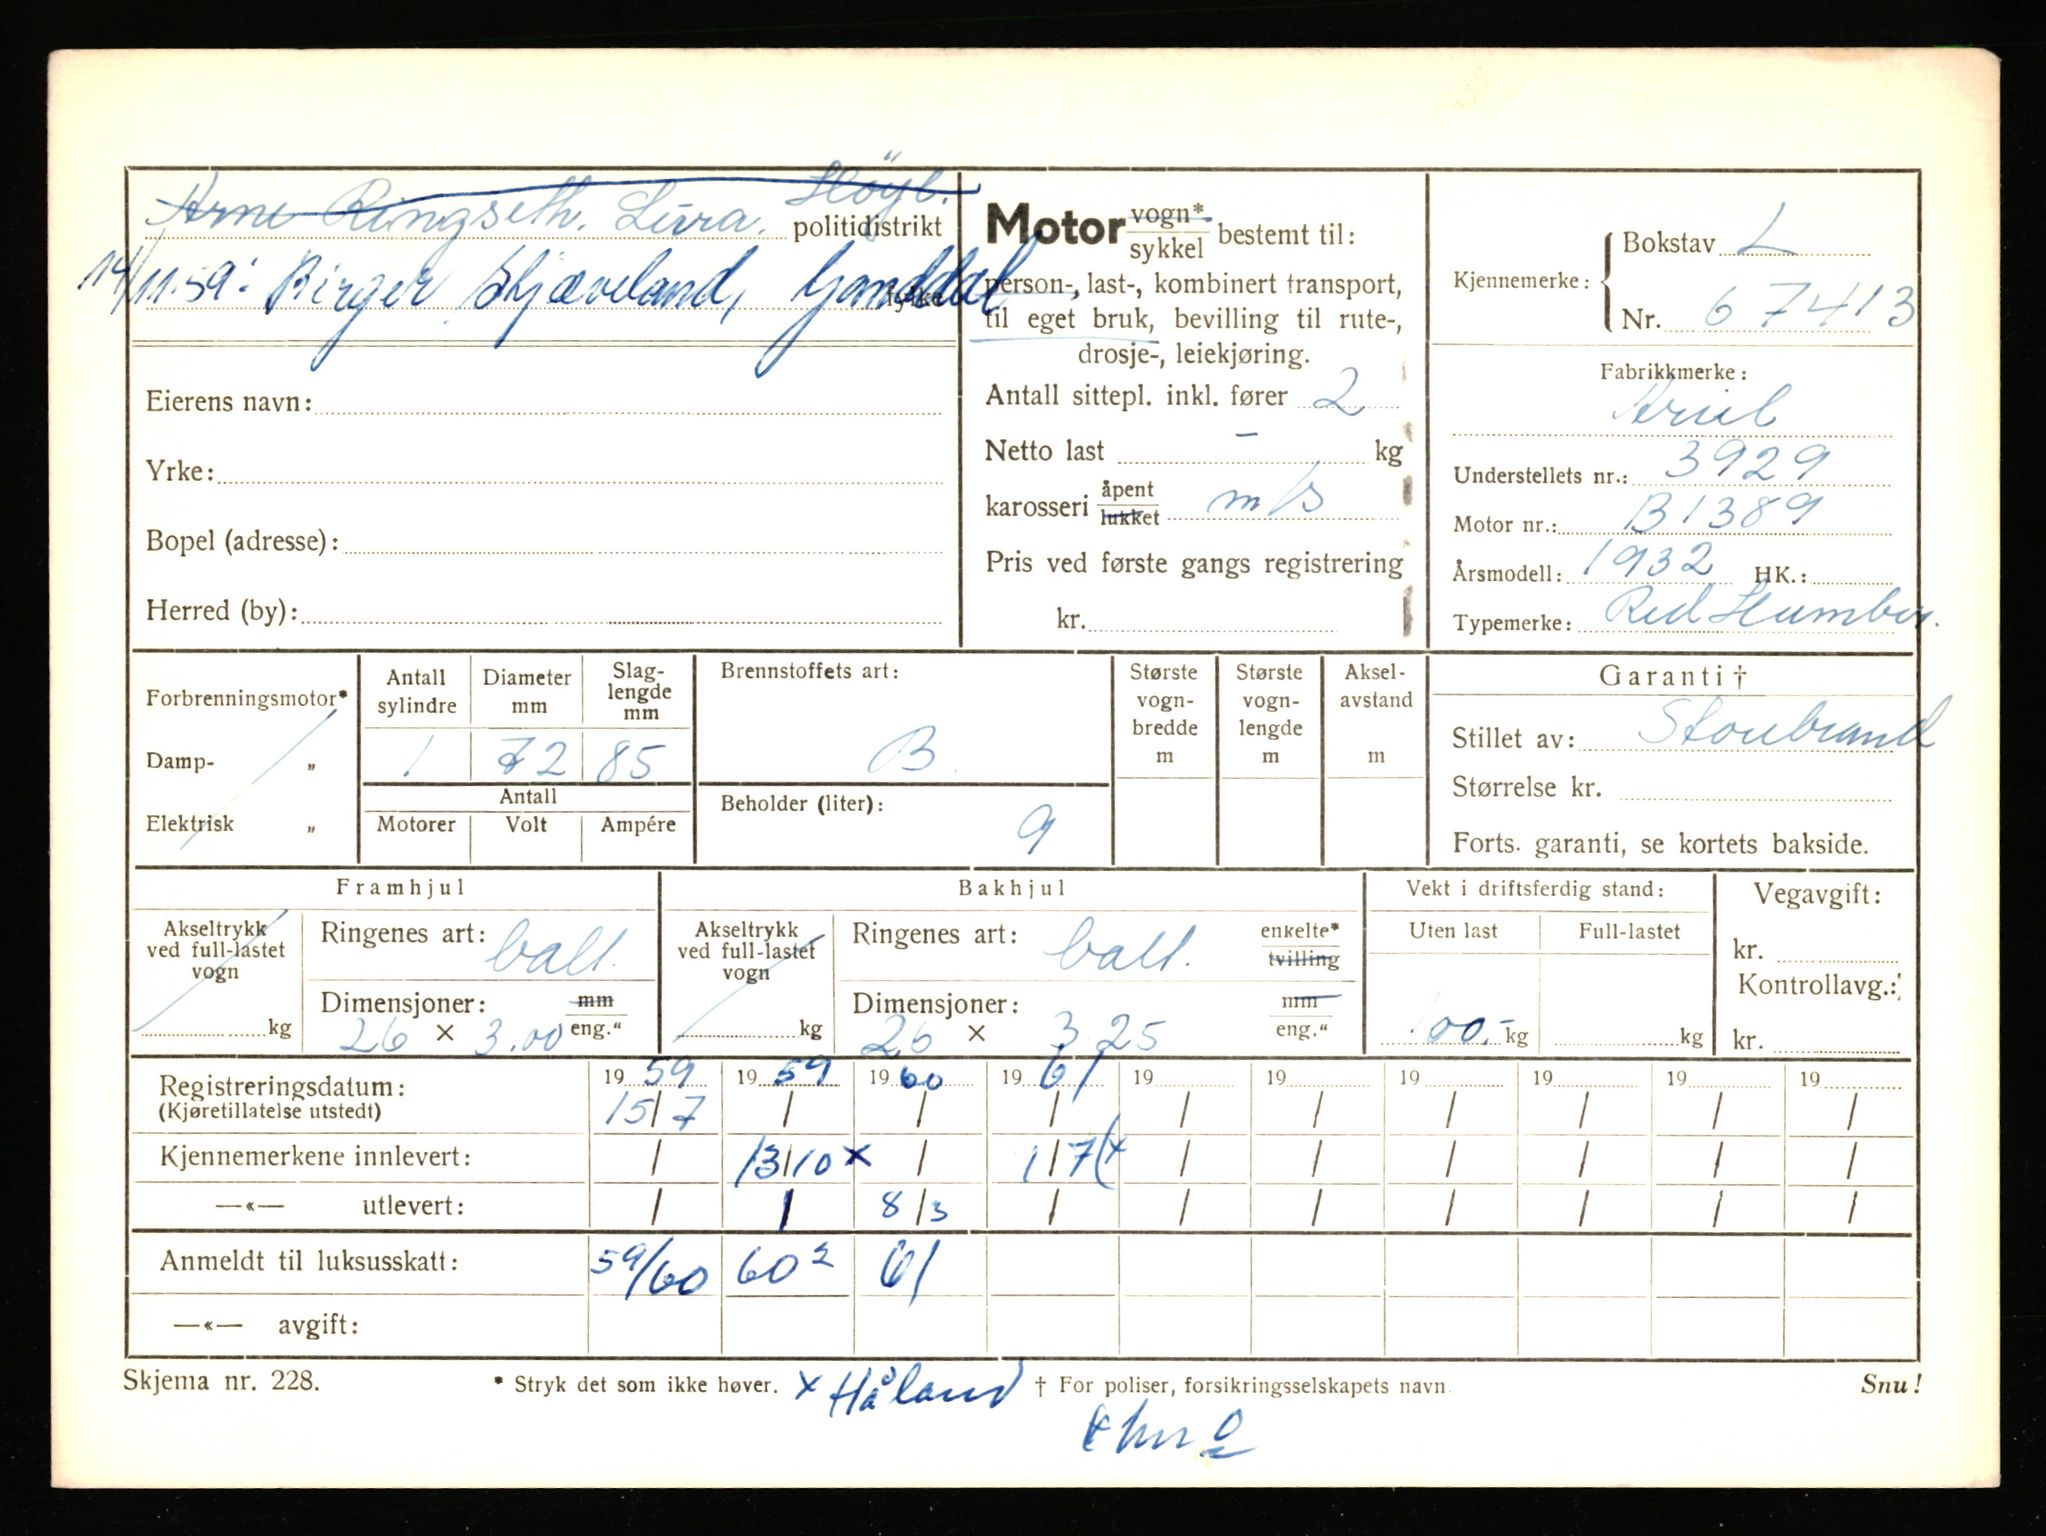 Arne Ringseth. Lura. Høyl.
politidistrikt
14/11.59: Birger Skjæveland, Ganddal
fylke
Eierens navn:
Yrke:
Bopel (adresse):
Herred (by):
Motor vogn* sykkel bestemt til:
person-, last-, kombinert transport,
til eget bruk, bevilling til rute-,
drosje-, leiekjøring.
Antall sittepl. inkl. fører 2
Netto last – kg
karosseri åpent lukket m/s
Pris ved første gangs registrering
kr.
Kjennemerke: Bokstav L
Nr. 67413
Fabrikkmerke:
Ariel
Understellets nr.: 3929
Motor nr.: B1389
Årsmodell: 1932 HK.:
Typemerke: Red Hunter.
Forbrenningsmotor*
Damp- „
Elektrisk „
Antall sylindre 1
Diameter mm 72
Slag-lengde mm 85
Antall
Motorer Volt Ampére
Brennstoffets art:
B
Beholder (liter):
9
Største vogn-bredde m
Største vogn-lengde m
Aksel-avstand m
Garanti †
Stillet av: Storebrand
Størrelse kr.
Forts. garanti, se kortets bakside.
Framhjul
Akseltrykk ved full-lastet vogn kg
Ringenes art: ball.
Dimensjoner: mm eng."
26 × 3.00
Bakhjul
Akseltrykk ved full-lastet vogn kg
Ringenes art: ball. enkelte* tvilling
Dimensjoner: mm eng."
26 × 3.25
Vekt i driftsferdig stand:
Uten last Full-lastet
100.- kg kg
Vegavgift:
kr.
Kontrollavg.:
kr.
Registreringsdatum: 1959 1959 1960 1961 19 19 19 19 19 19
(Kjøretillatelse utstedt) 15/7 / / / / / / / / /
Kjennemerkene innlevert: / 13/10 x / 1/7 (x / / / / / /
—«— utlevert: / / 8/3 / / / / / / /
Anmeldt til luksusskatt: 59/60 60² 61
—«— avgift:
Skjema nr. 228.
* Stryk det som ikke høver.
x Håland
† For poliser, forsikringsselskapets navn
Snu!